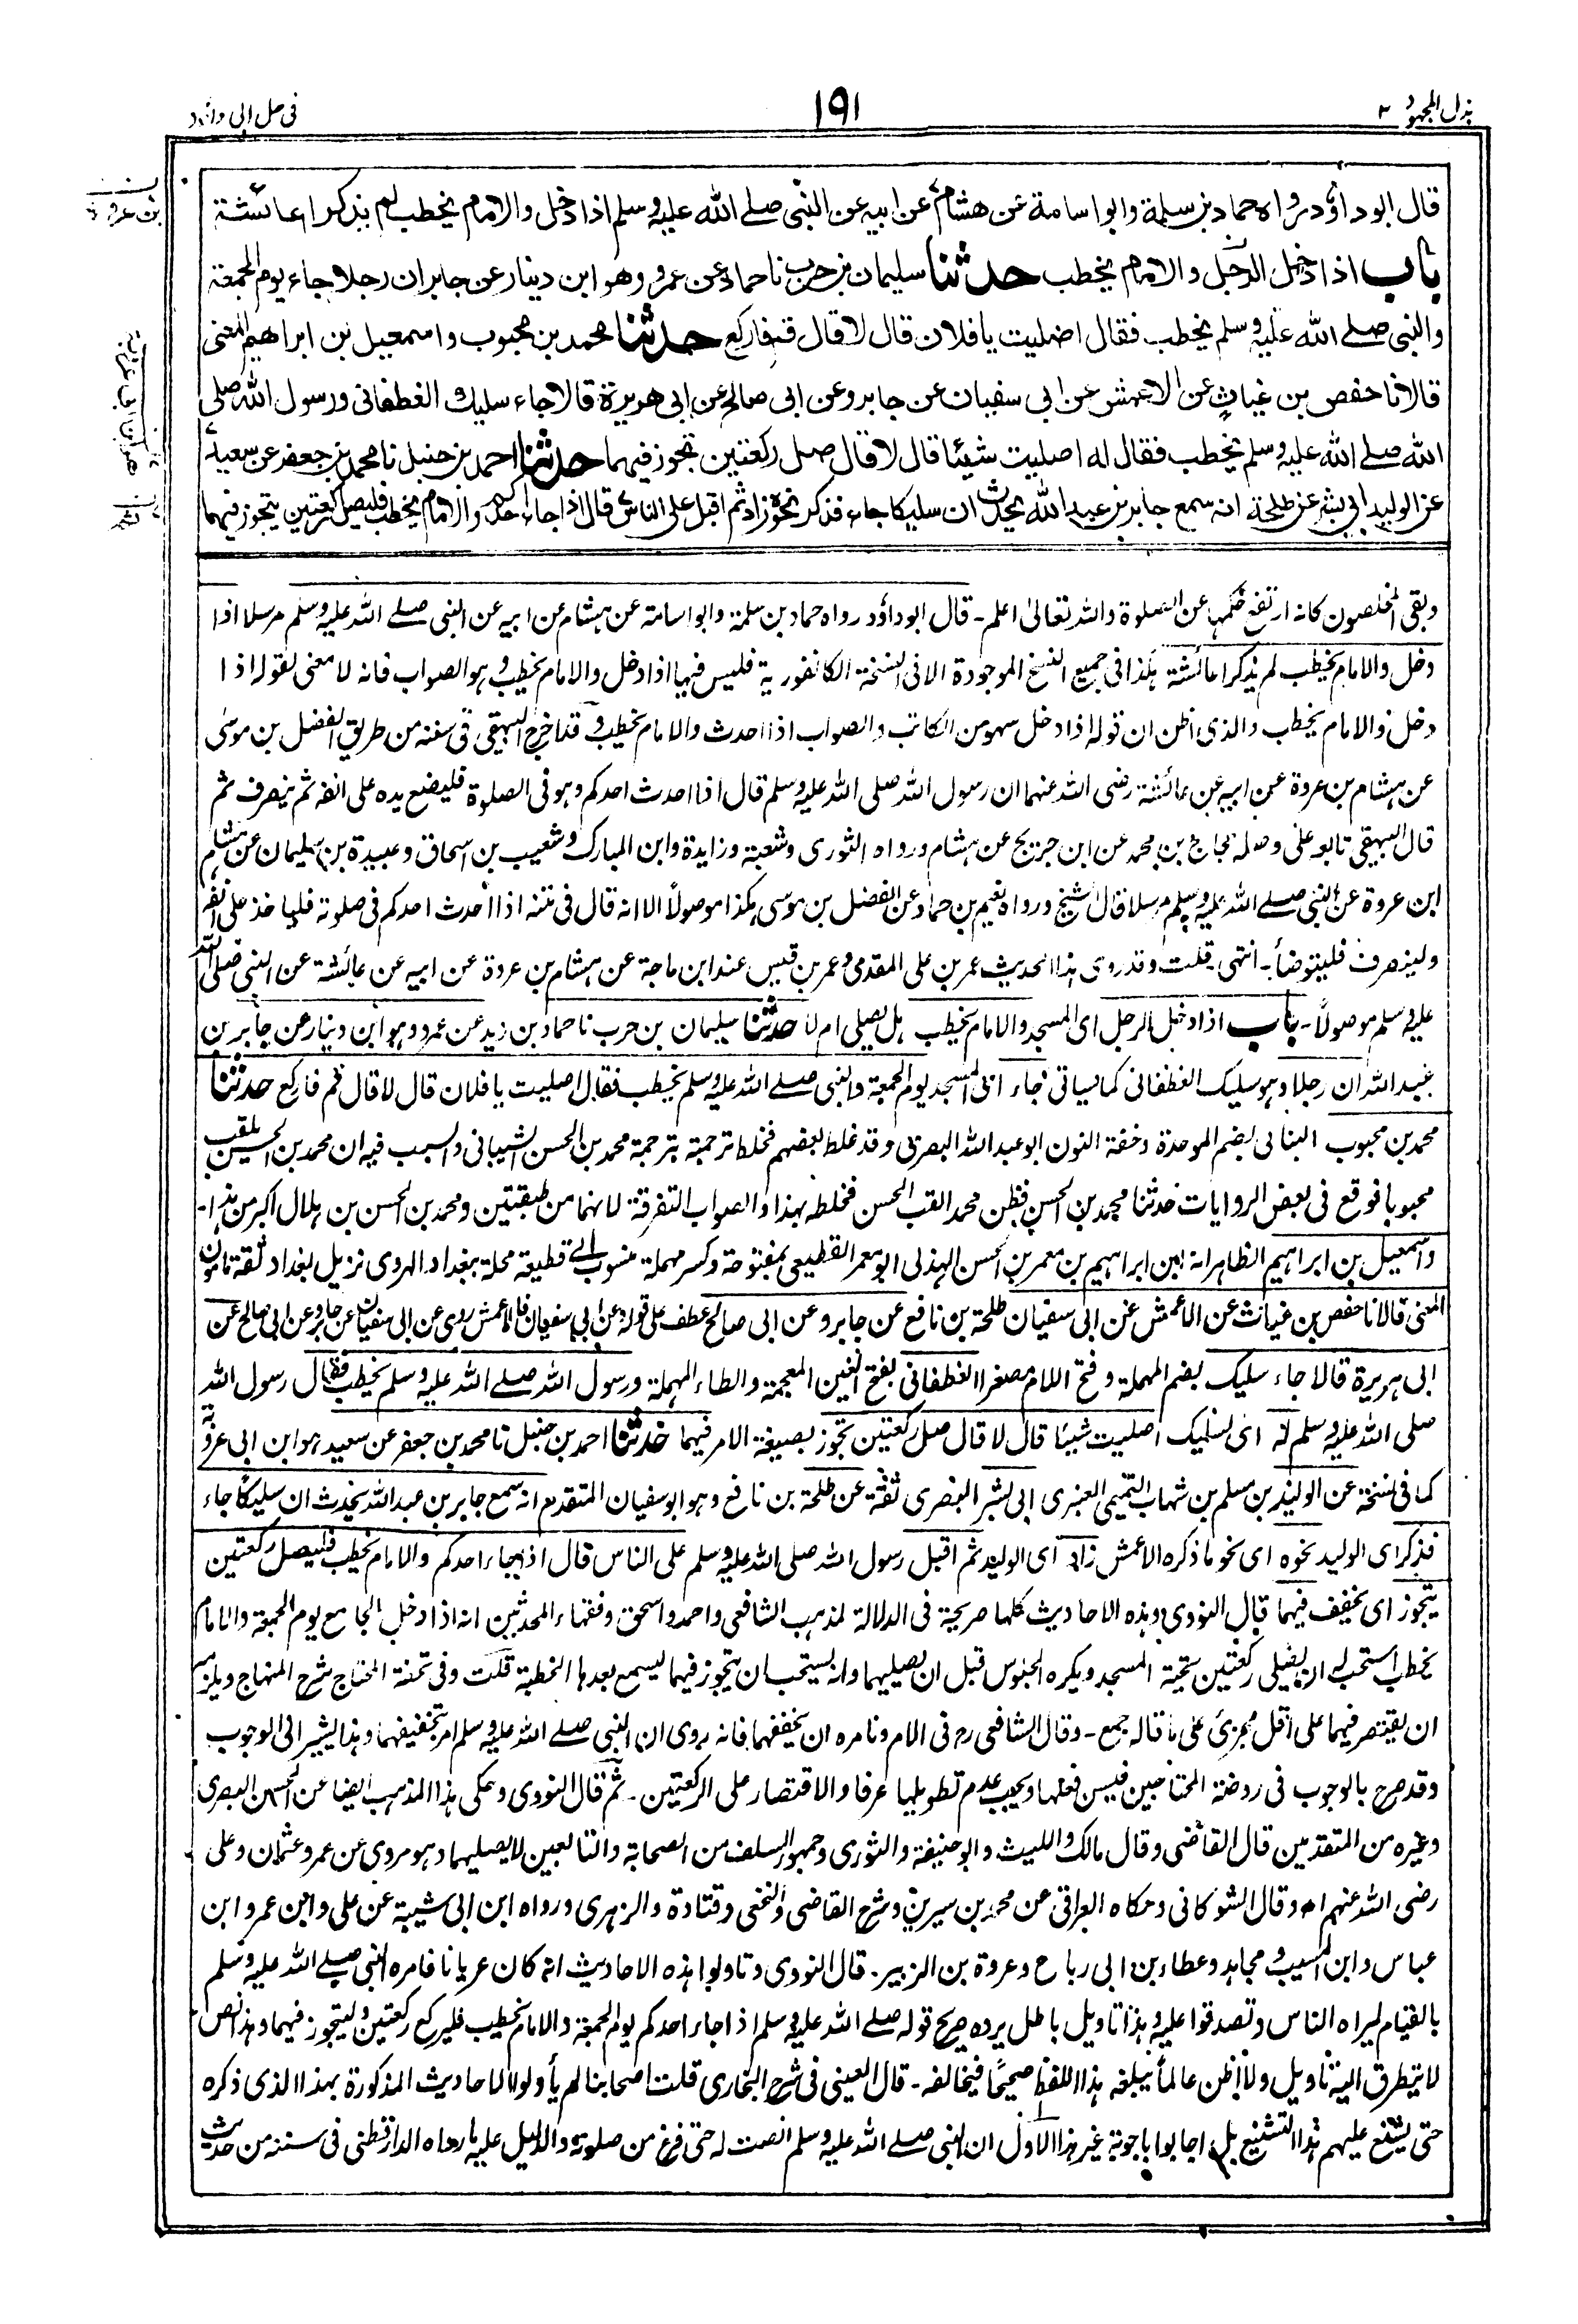 بذل المجهود ٢
١٩١
فى حل ابى داؤد
قال ابو داؤد رواه حماد بن سلمة وابو اسامة عن هشام عن ابيه عن النبى صلے الله عليه وسلم اذا دخل والامام يخطب لم يذكرا عائشة
باب اذا دخل الرجل والامام يخطب حدثنا سليمان بن حرب نا حماد عن عمرو وهو ابن دينار عن جابر ان رجلا جاء يوم الجمعة
والنبى صلے الله عليه وسلم يخطب فقال اصليت يا فلان قال لا قال قم فاركع حدثنا محمد بن محبوب واسمعيل بن ابراهيم المعنى
قالا نا حفص بن غياث عن الاعمش عن ابى سفيان عن جابر وعن ابى صالح عن ابى هريرة قالا جاء سليك الغطفانى ورسول الله صلى
الله صلے الله عليه وسلم يخطب فقال له اصليت شيئا قال لا قال صل ركعتين تجوز فيهما حدثنا احمد بن حنبل نا محمد بن جعفر عن سعيد
عن الوليد ابى بشر عن طلحة انه سمع جابر بن عبد الله يحدث ان سليكا جاء فذكر نحوه زاد ثم اقبل على الناس قال اذا جاء احدكم والامام يخطب فليصل ركعتين يتجوز فيهما
وبقى المخلصون كانه ارتفع حكمها عن الصلوة والله تعالىٰ اعلم ـ قال ابو داؤد رواه حماد بن سلمة وابو اسامة عن هشام عن ابيه عن النبى صلے الله عليه وسلم مرسلا اذا
دخل والامام يخطب لم يذكرا عائشة هكذا فى جميع النسخ الموجودة الا فى النسخة الكانفورية فليس فيها اذا دخل والامام يخطب وهو الصواب فانه لا معنى لقوله اذا
دخل والامام يخطب والذى اظن ان قوله اذا دخل سهو من الكاتب والصواب اذا احدث والامام يخطب وقد اخرج البيهقى فى سننه من طريق الفضل بن موسى
عن هشام بن عروة عن ابيه عن عائشة رضى الله عنها ان رسول الله صلى الله عليه وسلم قال اذا احدث احدكم وهو فى الصلوة فليضع يده على انفه ثم ينصرف ثم
قال البيهقى تابعه على وصله حجاج بن محمد عن ابن جريج عن هشام ورواه الثورى وشعبة وزايدة وابن المبارك وشعيب بن اسحاق وعبيدة بن سليمان عن هشام
ابن عروة عن النبى صلے الله عليه وسلم مرسلا قال الشيخ ورواه نعيم بن حماد عن الفضل بن موسى هكذا موصولا الا انه قال فى متنه اذا احدث احدكم فى صلوته فليأخذ على انفه
ولينصرف فليتوضأ ـ انتهى ـ قلت وقد روى هذا الحديث عمر بن على المقدمى وعمر بن قيس عند ابن ماجة عن هشام بن عروة عن ابيه عن عائشة عن النبى صلى الله
عليه وسلم موصولا ـ باب اذا دخل الرجل اى المسجد والامام يخطب هل يصلى ام لا حدثنا سليمان بن حرب نا حماد بن زيد عن عمرو وهو ابن دينار عن جابر بن
عبد الله ان رجلا وهو سليك الغطفانى كما سياتى جاء اى المسجد يوم الجمعة والنبى صلے الله عليه وسلم يخطب فقال اصليت يا فلان قال لا قال قم فاركع حدثنا
محمد بن محبوب البنانى بضم الموحدة وخفة النون ابو عبد الله البصرى وقد غلط بعضهم فخلط ترجمته بترجمة محمد بن الحسن الشيبانى والسبب فيه ان محمد بن الحسين يلقب
محبوبا فوقع فى بعض الروايات حدثنا محمد بن الحسن فظن محمد القب الحسن فخلطه بهذا والصواب التفرقة لانهما من طبقتين ومحمد بن الحسن بن هلال اكبر من هذا ـ
واسمعيل بن ابراهيم الظاهر انه ابن ابراهيم بن معمر بن الحسن الهذلى ابو معمر القطيعى بمفتوحة وكسر مهملة منسوب الے قطيعة محلة ببغداد الهروى نزيل بغداد ثقة مامون
المعنى قالا نا حفص بن غياث عن الاعمش عن ابى سفيان طلحة بن نافع عن جابر وعن ابى صالح عطف على قوله عن ابى سفيان فالاعمش روى عن ابى سفيان عن جابر وعن ابى صالح عن
ابى هريرة قالا جاء سليك بضم المهملة وفتح اللام مصغرا الغطفانى بفتح الغين المعجمة والطاء المهملة ورسول الله صلے الله عليه وسلم يخطب فقال رسول الله
صلى الله عليه وسلم له اى لسليك اصليت شيئا قال لا قال صل ركعتين تجوز بصيغة الامر فيهما حدثنا احمد بن حنبل نا محمد بن جعفر عن سعيد هو ابن ابى عروبة
كما فى نسخة عن الوليد بن مسلم بن شهاب التميمى العنبرى ابى بشر البصرى ثقة عن طلحة بن نافع وهو ابو سفيان المتقدم انه سمع جابر بن عبد الله يحدث ان سليكا جاء
فذكر اى الوليد نحوه اى نحو ما ذكره الاعمش زاد اى الوليد ثم اقبل رسول الله صلى الله عليه وسلم على الناس قال اذا جاء احدكم والامام يخطب فليصل ركعتين
يتجوز اى يخفف فيهما قال النووى وهذه الاحاديث كلها صريحة فى الدلالة لمذهب الشافعى واحمد واسحق وفقهاء المحدثين انه اذا دخل الجامع يوم الجمعة والامام
يخطب استحب له ان يصلى ركعتين تحية المسجد ويكره الجلوس قبل ان يصليهما وانه يستحب ان يتجوز فيهما ليسمع بعدها الخطبة قلت وفى تحفة المحتاج شرح المنهاج ويلزم
ان يقتصر فيهما على اقل مجزئ على ما قاله جمع ـ وقال الشافعى رح فى الام ونامره ان يخففهما فانه روى ان النبى صلے الله عليه وسلم امر بتخفيفهما وهذا يشير الى الوجوب
وقد صرح بالوجوب فى روضة المحتاجين فيسن فعلها ويجب عدم تطويلها عرفا والاقتصار على الركعتين ـ ثم قال النووى وحكى هذا المذهب ايضا عن الحسن البصرى
وغيره من المتقدمين قال القاضى وقال مالك والليث وابو حنيفة والثورى وجمهور السلف من الصحابة والتابعين لا يصليهما وهو مروى عن عمر وعثمان وعلى
رضى الله عنهم اه وقال الشوكانى وحكاه العراقى عن محمد بن سيرين وشريح القاضى والنخعى وقتادة والزهرى ورواه ابن ابى شيبة عن على وابن عمر وابن
عباس وابن المسيب ومجاهد وعطاء بن ابى رباح وعروة بن الزبير ـ قال النووى وتاولوا هذه الاحاديث انه كان عريانا فامره النبى صلے الله عليه وسلم
بالقيام ليراه الناس وتصدقوا عليه وهذا تاويل باطل يرده صريح قوله صلے الله عليه وسلم اذا جاء احدكم يوم الجمعة والامام يخطب فليركع ركعتين وليتجوز فيهما وهذا نص
لا يتطرق اليه تاويل ولا اظن عالما يبلغه هذا اللفظ صحيحا فيخالفه ـ قال العينى فى شرح البخارى قلت اصحابنا لم يأولوا الاحاديث المذكورة بهذا الذى ذكره
حتى يشنع عليهم هذا التشنيع بل اجابوا باجوبة غير هذا الاول ان النبى صلے الله عليه وسلم انصت له حتى فرغ من صلوته والدليل عليه ما رواه الدارقطنى فى سننه من حديث